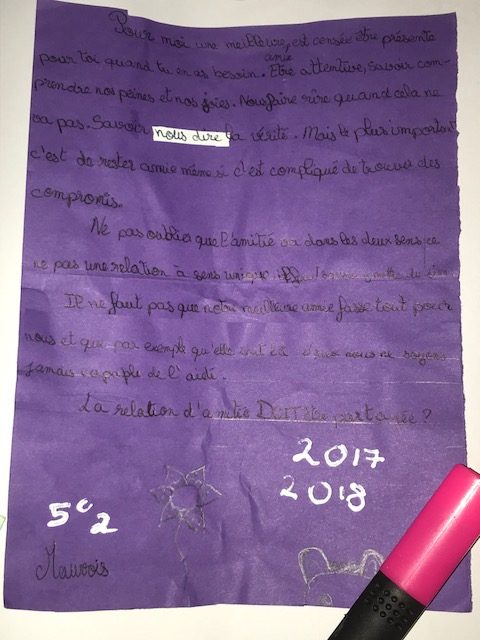 Pour moi une meilleure, est censée être présente
amie
pour toi quand tu en as besoin. Être attentive, savoir com-
prendre nos peines et nos joies. Nous faire rire quand cela ne
va pas. Savoir nous dire la vérité. Mais le plus important
c'est de rester amie même si c'est compliqué de trouver des
compromis.
Ne pas oublier que l'amitié va dans les deux sens ce
ne pas une relation à sens unique.
Il ne faut pas que notre meilleure amie fasse tout pour
nous et que par exemple qu'elle soit là nous ne soyons
jamais capable de l'aidé.
La relation d'amitié DOIT être partagée ?
2017
2018
5e2